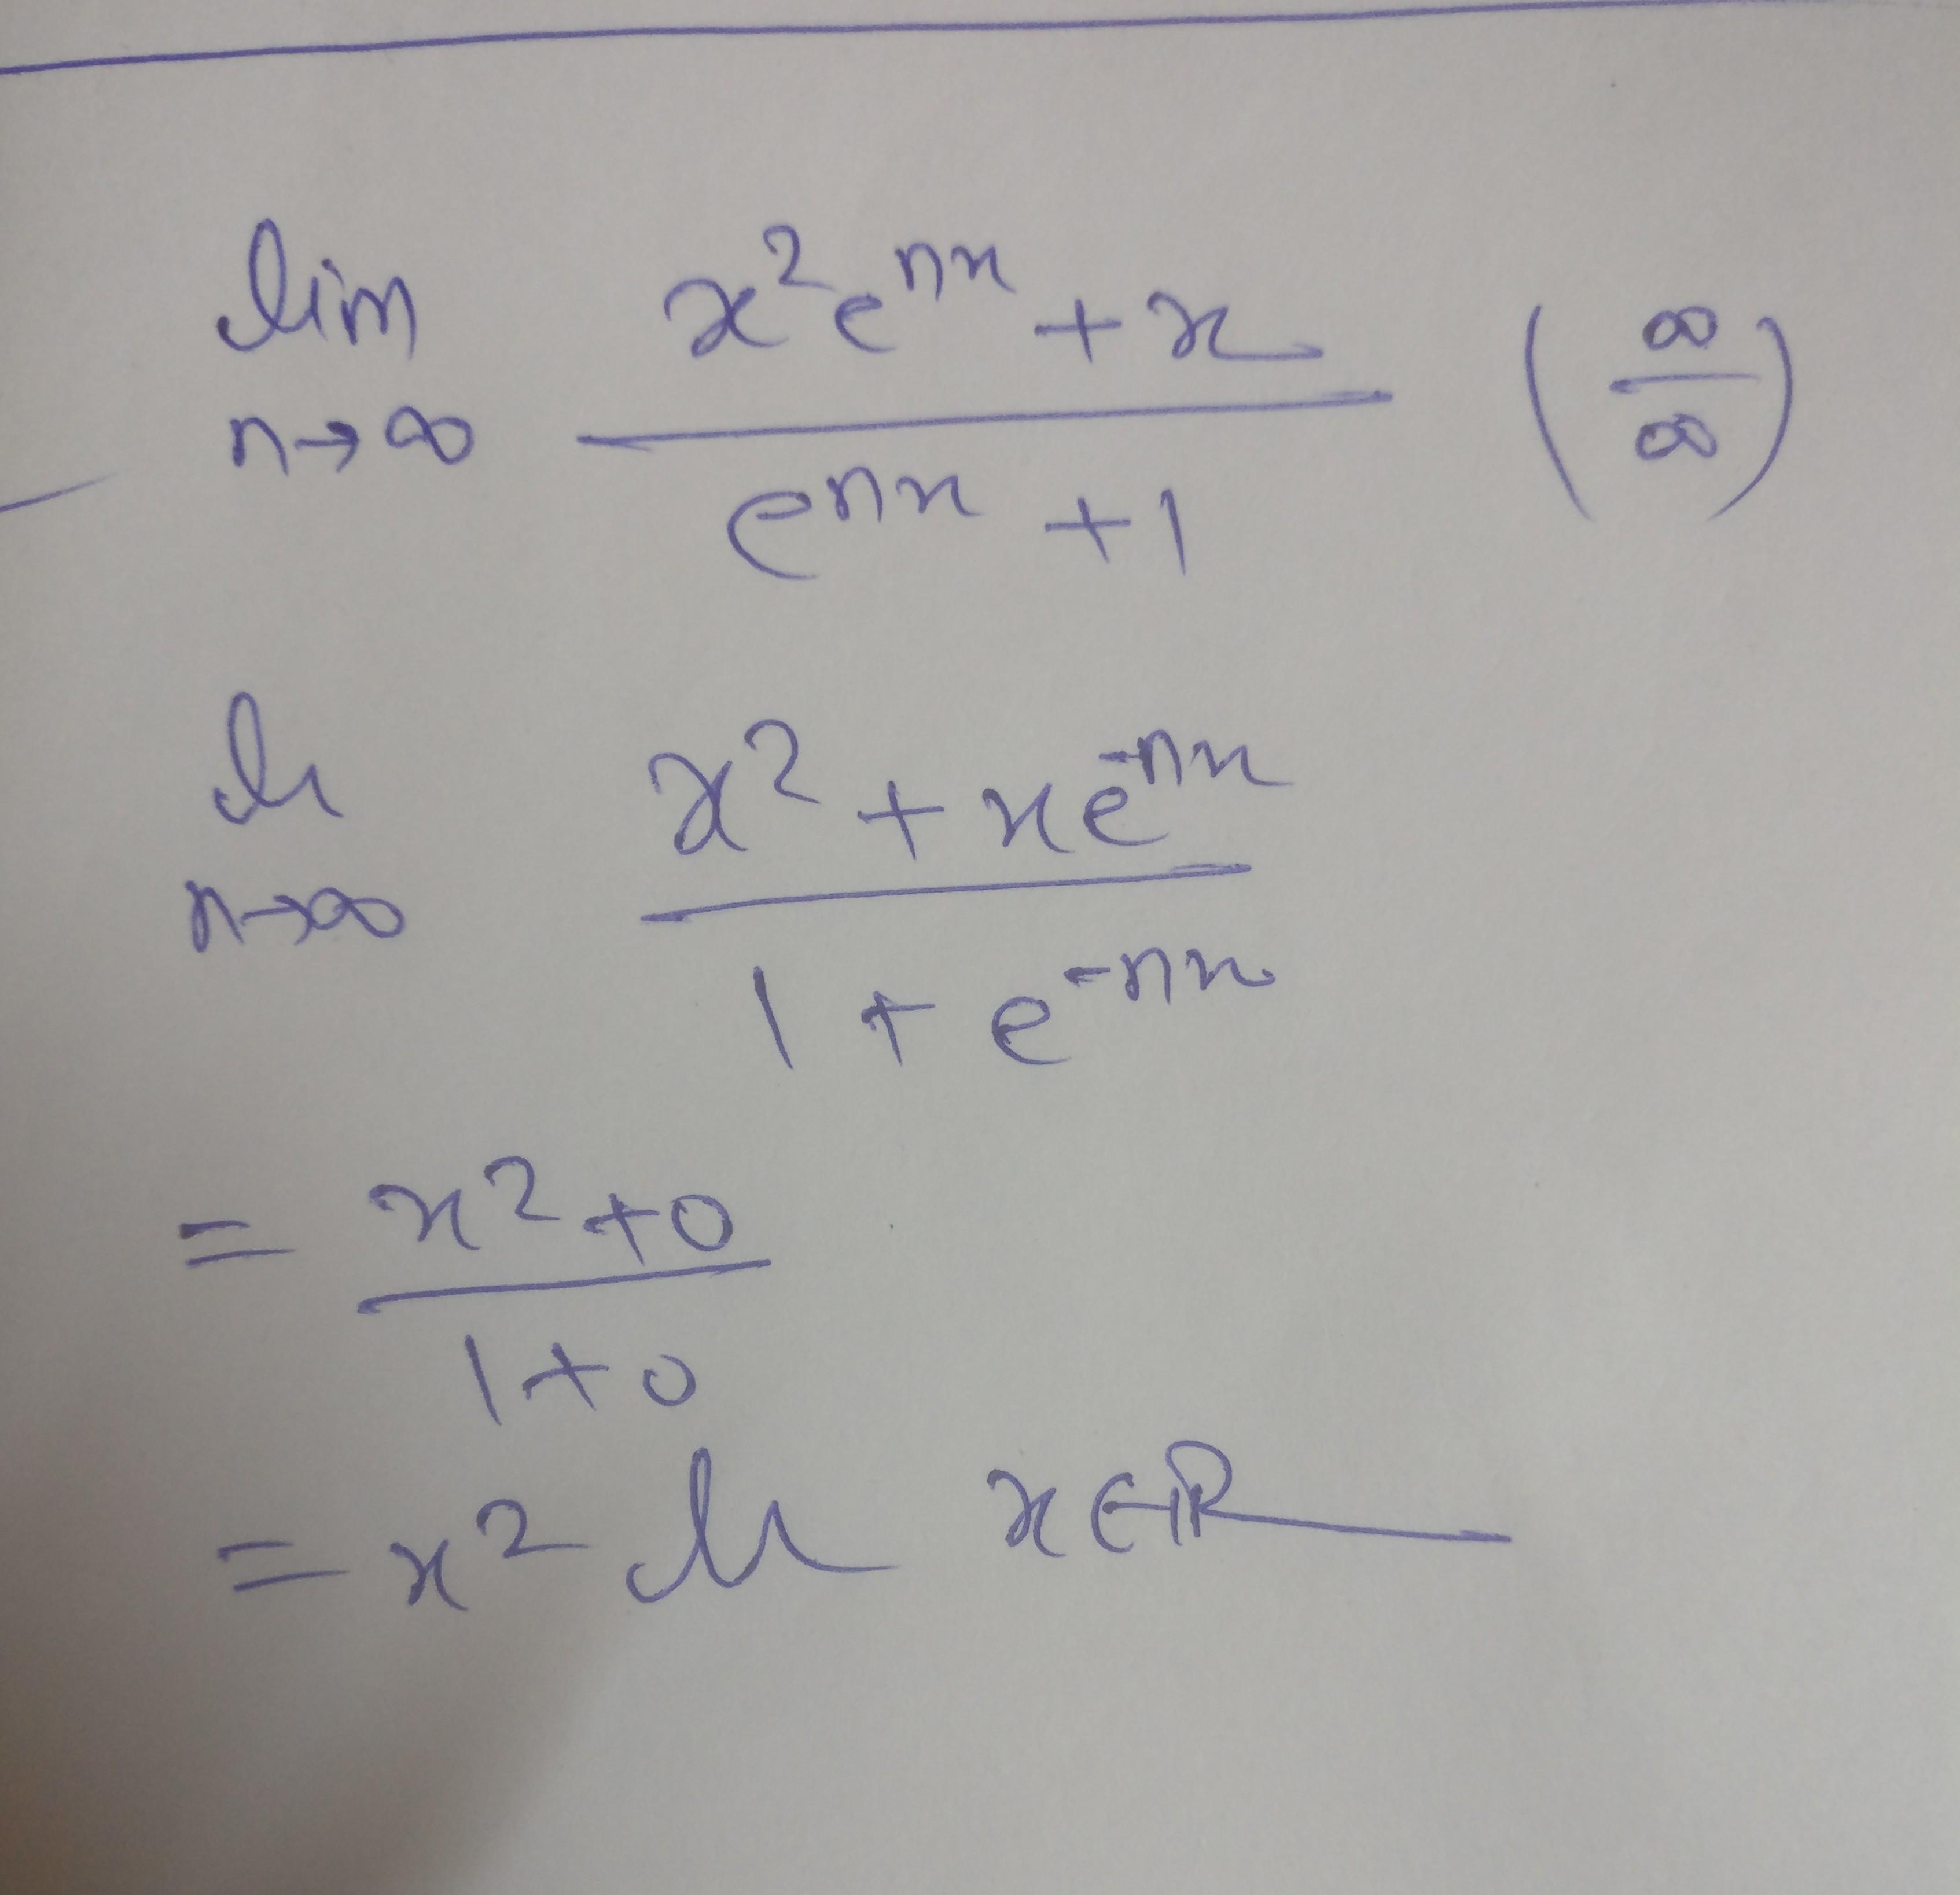 lim x²eⁿˣ + x (∞/∞)
n→∞ eⁿˣ + 1
n→∞ x² + xe⁻ⁿˣ
1 + e⁻ⁿˣ
= x² + 0
1 + 0
= x² x ∈ ℝ